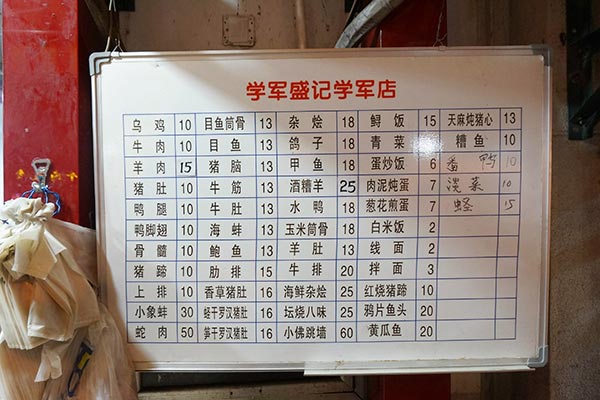 学军盛记学军店
乌鸡 10 目鱼筒骨 13 杂烩 18 鲟饭 15 天麻炖猪心 13
牛肉 10 目鱼 13 鸽子 18 青菜 5 糟鱼 10
羊肉 15 猪脑 13 甲鱼 18 蛋炒饭 6 番鸭 10
猪肚 10 牛筋 13 酒糟羊 25 肉泥炖蛋 7 淡菜 10
鸭腿 10 牛肚 13 水鸭 18 葱花煎蛋 7 蛏 15
鸭脚翅 10 海蚌 13 玉米筒骨 13 白米饭 2
骨髓 10 鲍鱼 13 羊肚 13 线面 2
猪蹄 10 肋排 15 牛排 20 拌面 3
上排 10 香草猪肚 16 海鲜杂烩 25 红烧猪蹄 10
小象蚌 30 蛏干罗汉猪肚 16 坛烧八味 25 鸦片鱼头 20
蛇肉 50 笋干罗汉猪肚 16 小佛跳墙 60 黄瓜鱼 20